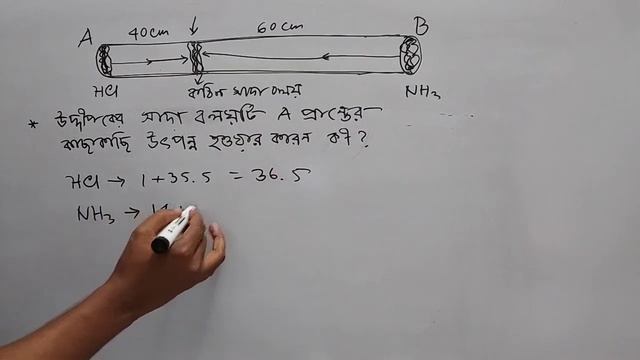 A 40cm 60cm B
HCl কঠিন সাদা বলয় NH₃
* উদ্দীপকের সাদা বলয়টি A প্রান্তের
কাছাকাছি উৎপন্ন হওয়ার কারন কী?
HCl → 1+35.5 = 36.5
NH₃ → 14